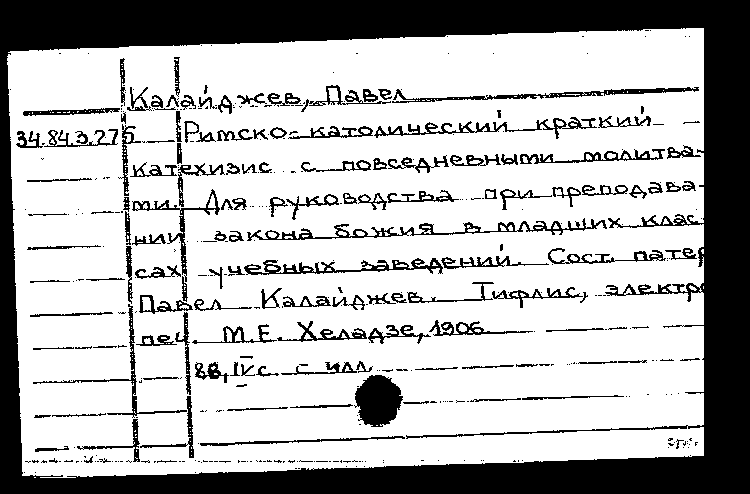 Калайджев, Павел
34.84.3.275 Римско-католический краткий
катехизис с повседневными молитва-
ми. Для руководства при преподава-
нии закона божия в младших клас
сах учебных заведений. Сост. патер
Павел Калайджев. Тифлис, электро
печ. М.Е. Хеладзе, 1906
88, IV с. с илл.